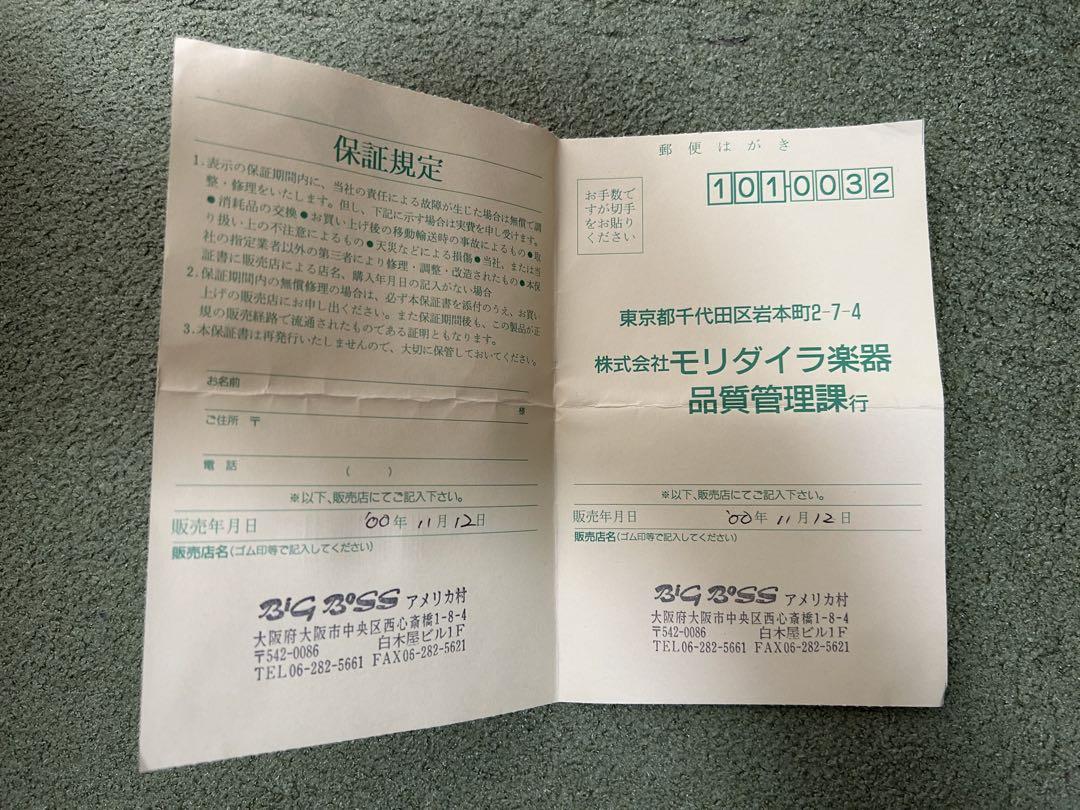 保証規定
1.表示の保証期間内に、当社の責任による故障が生じた場合は無償で調
整・修理をいたします。但し、下記に示す場合は実費を申し受けます。
●消耗品の交換●お買い上げ後の移動輸送時の事故によるもの●取
り扱い上の不注意によるもの●天災などによる損傷●当社、または当
社の指定業者以外の第三者により修理・調整・改造されたもの●本保
証書に販売店による店名、購入年月日の記入がない場合
2.保証期間内の無償修理の場合は、必ず本保証書を添付のうえ、お買い
上げの販売店にお申し出ください。また保証期間後も、この製品が正
規の販売経路で流通されたものである証明ともなります。
3.本保証書は再発行いたしませんので、大切に保管しておいてください。
お名前
様
ご住所 〒
電話 ( )
※以下、販売店にてご記入下さい。
販売年月日 '00年 11月 12日
販売店名(ゴム印等で記入してください)
BiG BoSS アメリカ村
大阪府大阪市中央区西心斎橋1-8-4
〒542-0086 白木屋ビル1F
TEL06-282-5661 FAX06-282-5621
郵便はがき
お手数で
すが切手
をお貼り
ください
101-0032
東京都千代田区岩本町2-7-4
株式会社モリダイラ楽器
品質管理課行
※以下、販売店にてご記入下さい。
販売年月日 '00年 11月 12日
販売店名(ゴム印等で記入してください)
BiG BoSS アメリカ村
大阪府大阪市中央区西心斎橋1-8-4
〒542-0086 白木屋ビル1F
TEL06-282-5661 FAX06-282-5621